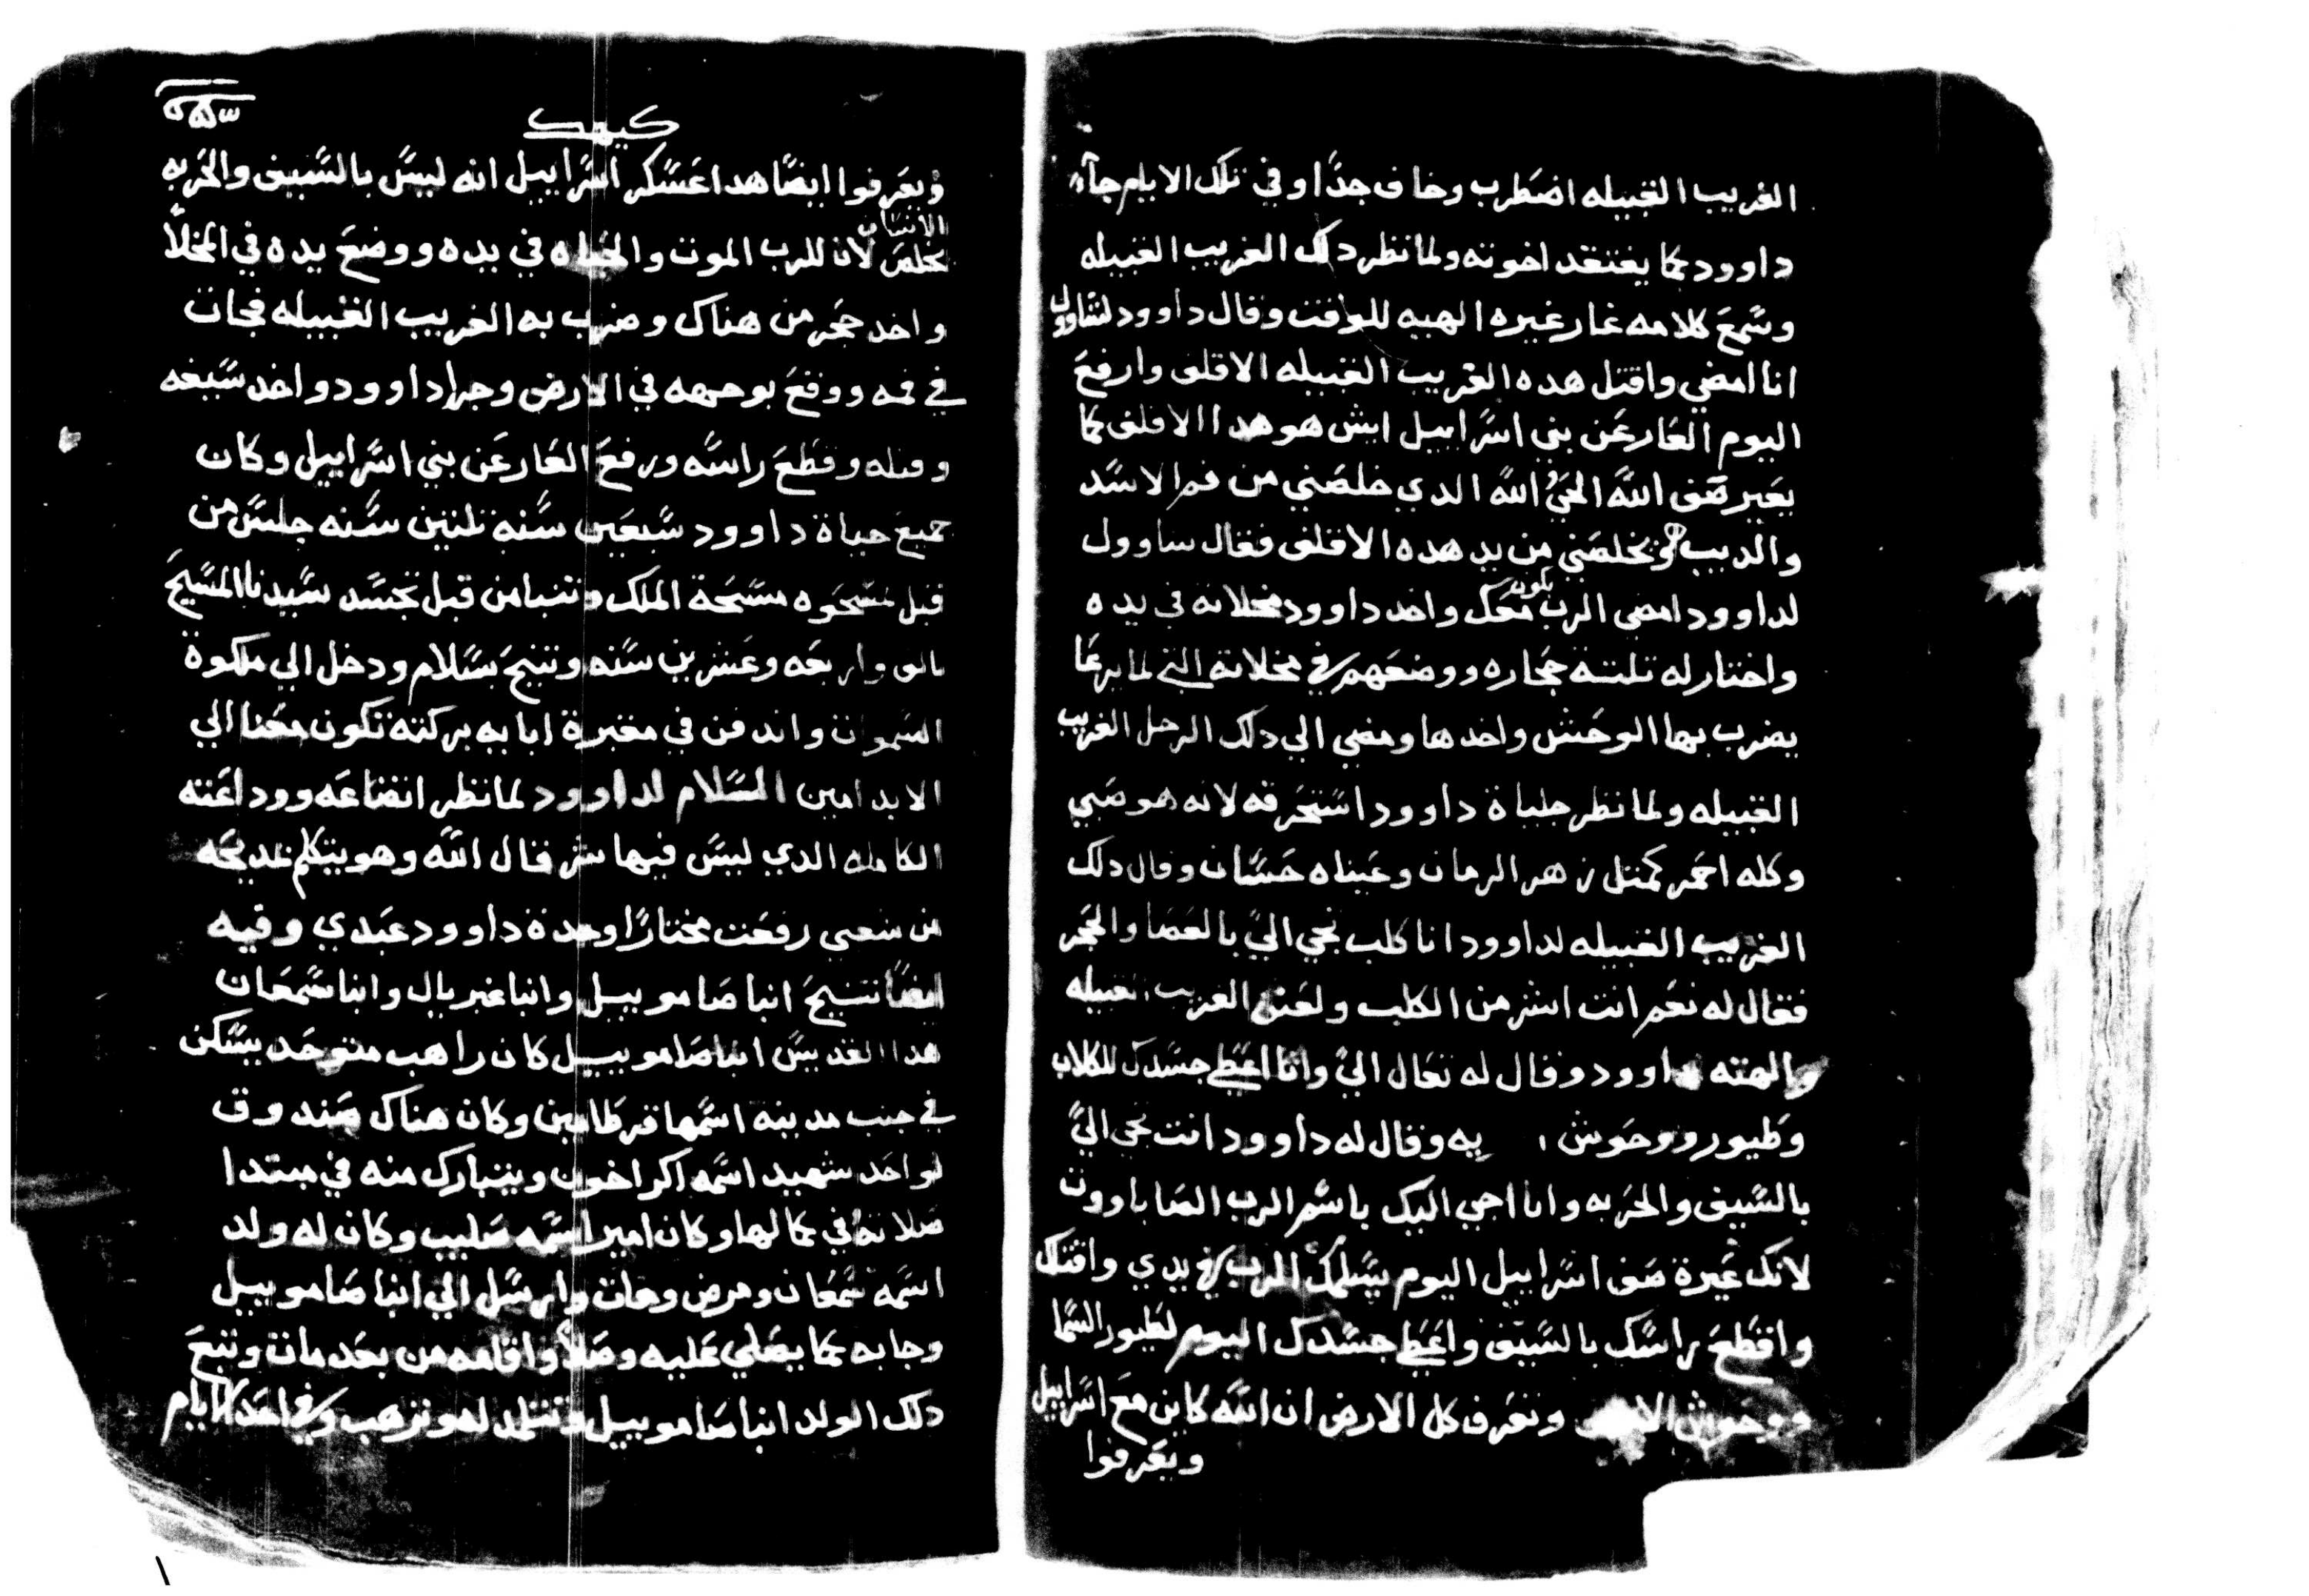 الغريب القبيله اضطرب وخاف جدًا وفي تلك الايام جاء
داوود كما يفتقد اخوته ولما نظر دلك الغريب القبيله
وسمع كلامه غار غيره الهيه للوقت وقال داوود لشاوول
انا امضي واقتل هده الغريب القبيله الاقلف وارفع
اليوم العار عن بني اسراييل ايش هو هدا الاقلف كما
يعير صف الله الحي الله الدي خلصني من فم الاسد
والديب هو يخلصني من يد هده الاقلف فقال ساوول
لداوود امضي الرب يكون معك واخد داوود مخلاته في يده
واختار له تلته حجاره ووضعهم في مخلاته التي لما يرعا
يضرب بها الوحش واخدها ومضي الي دلك الرجل الغريب
القبيله ولما نظر جلباة داوود استحرقه لانه هو صبي
وكله احمر كمتل زهر الرمان وعيناه حسان وقال دلك
الغريب القبيله لداوود انا كلب تجي اليّ بالعصا والحجر
فقال له نعم انت اشر من الكلب ولعن الغريب القبيله
والهته داوود وقال له تعال اليّ وانا اعطي جسدك للكلاب
وطيور ووحوش يه وقال له داوود انت تجي اليّ
بالسيف والحربه وانا اجي اليك باسم الرب الصاباووت
لانك عيرة صف اسراييل اليوم يسلمك الرب في يدي واقتلك
واقطع راسك بالسيف واعطي جسدك اليوم لطيور السما
ووحوش الارض وتعرف كل الارض ان الله كاين مع اسراييل
ويعرفوا
كيهك
ويعرفوا ايضًا هدا عسكر اسراييل انه ليس بالسيف والحربه
يخلص الانسان لان للرب الموت والحياه في يده ووضع يده في المخلاه
واخد حجر من هناك وضرب به الغريب القبيله فجات
في فمه ووقع بوجهه في الارض وجرا داوود واخد سيفه
وقتله وقطع راسه ورفع العار عن بني اسراييل وكان
جميع حياة داوود سبعين سنة تلتين سنه جلس من
قبل مسحوه مسحة الملك وتنبا من قبل تجسد سيدنا المسيح
بالف واربعه وعشرين سنه وتنيح بسلام ودخل الي ملكوة
السموات واندفن في مقبرة ابايه بركته تكون معنا الي
الابد امين السلام لداوود لما نظر اتضاعه ووداعته
الكامله الدي ليس فيها شر قال الله وهو يتكلم
من شعبي رفعت مختارًا وجدة داوود عبدي وفيه
ايضًا تنيح انبا صاموييل وانبا غبريال وانبا سمعان
هدا القديس انبا صاموييل كان راهب متوحد يسكن
في جنب مدينة اسمها قرطامين وكان هناك صندوق
لواحد شهيد اسمه اكراخون ويتبارك منه في مبتدا
صلاته وفي كمالها وكان امير اسمه صليب وكان له ولد
اسمه سمعان ومرض ومات وارسل الي انبا صاموييل
وجابه كما يصلي عليه وصلا واقامه من بعد مات وتبع
دلك الولد انبا صاموييل وتتلمد له وترهب وفي احد الايام